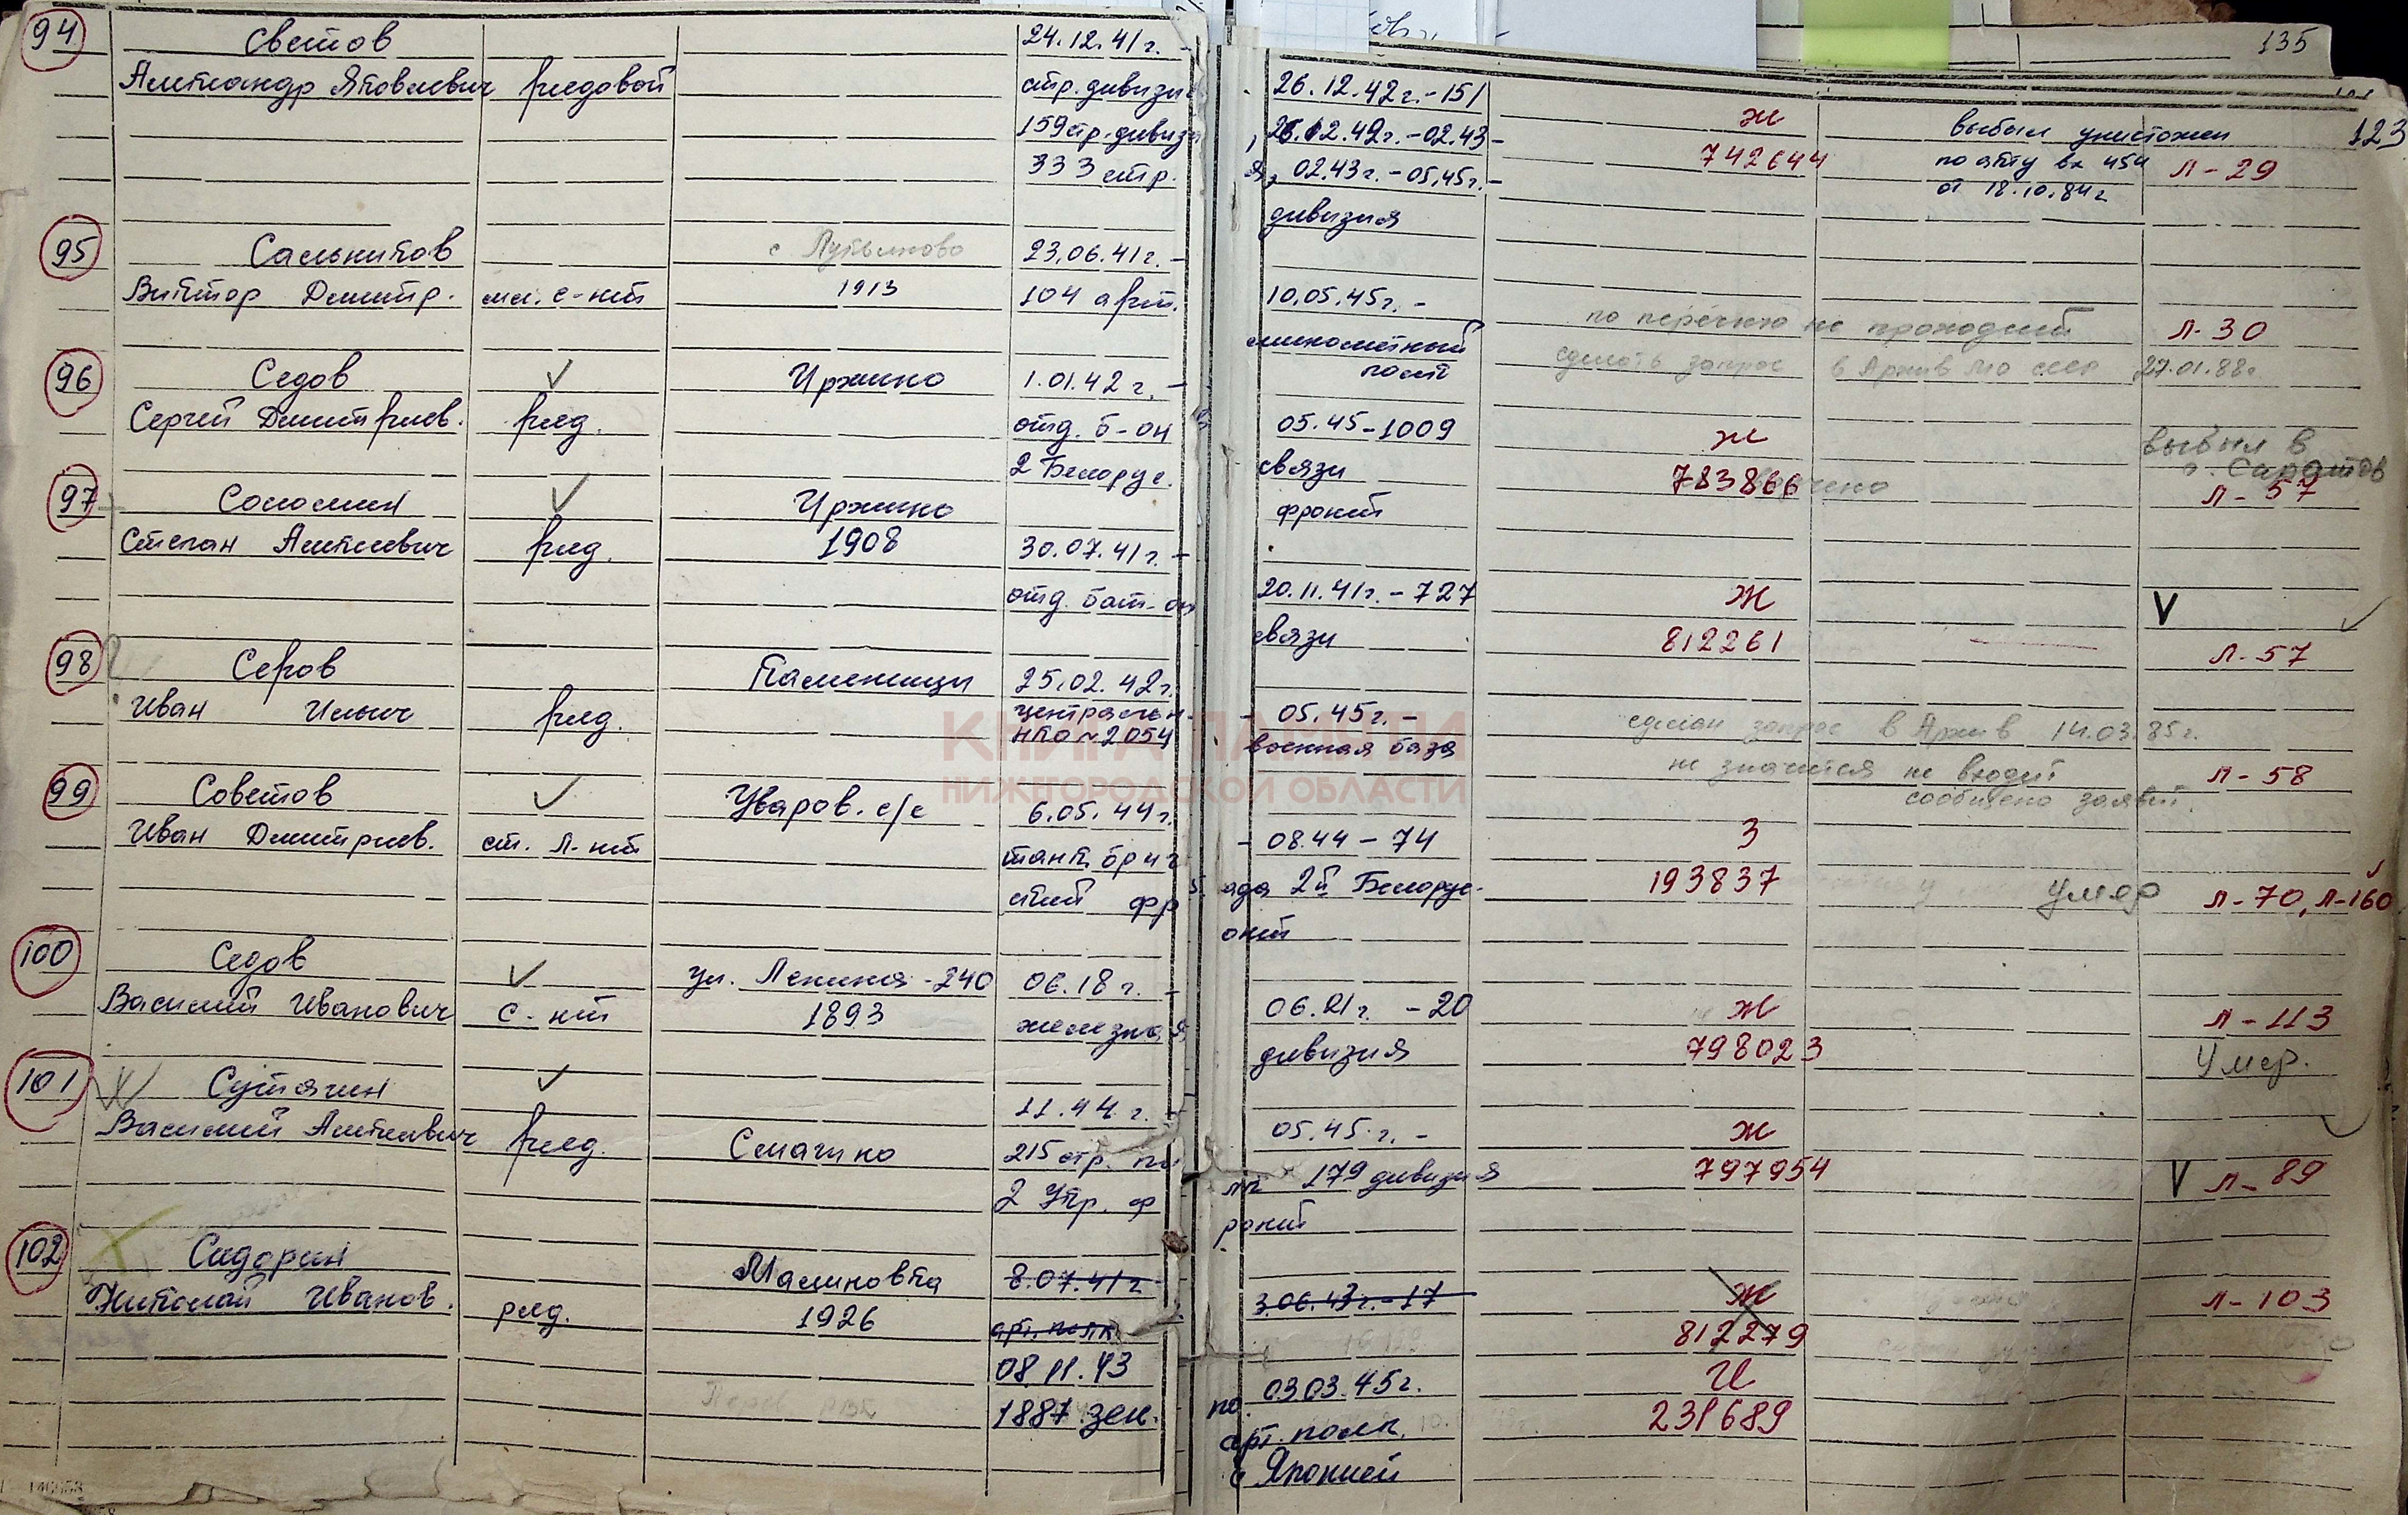 135
123
94 Светов 24.12.41г. -
Александр Яковлевич рядовой стр. дивизи 26.12.42г. - 151
159 стр. дивизи 26.12.42г. - 02.43 - ж выбыл уничтожен
333 стр. 02.43г. - 05.45г. - 742644 по акту вх 454 Л-29
дивизия от 18.10.84г
95 Сальников 23.06.41г. -
Виктор Дмитр. мл. с-нт 1913 104 арт. 10.05.45г. -
минометный по перечню не проходит Л-30
полк сделать запрос в Архив МО СССР 27.01.88г.
96 Седов Иржино 1.01.42г. -
Сергей Дмитриев. ряд. отд. б-он 05.45 - 1009 ж выбыл в
2 Белорус. связи 783866 г. Саратов
фронт Л-57
97 Соломин Иржино
Степан Алексеевич ряд. 1908 30.07.41г. -
отд. бат-он 20.11.41г. - 727 ж
связи 812261 Л-57
98 Серов Каменищи 25.02.42г.
Иван Ильич ряд. центральн. - 05.45г. - сделан запрос в Архив 14.03.85г.
НКО №2054 военная база не значится не входит Л-58
сообщено заявит.
КНИГА ПАМЯТИ
НИЖЕГОРОДСКОЙ ОБЛАСТИ
99 Советов Уваров. с/с 6.05.44г.
Иван Дмитриев. ст. л-нт танк. бриг - 08.44 - 74 З
ский фр ада 2й Белорус- 193837 умер Л-70, Л-160
онт
100 Седов ул. Ленина - 240 06.18г. -
Василий Иванович с-нт 1893 железная 06.21г. - 20 ж Л-113
дивизия 798023 Умер.
101 Сутягин 11.44г. -
Василий Алексеевич ряд. Смагино 215 стр. по 05.45.г. - ж
2 Укр. ф лк 179 дивизия 797954 Л-89
ронт
102 Сидорин Малиновка 8.07.41г
Николай Иванов. ряд. 1926 арт. полк 3.06.43г. - 17 ж Л-103
812279
08.11.43 03.03.45г. И
1887 зен. арт. полк 231689
с Японией